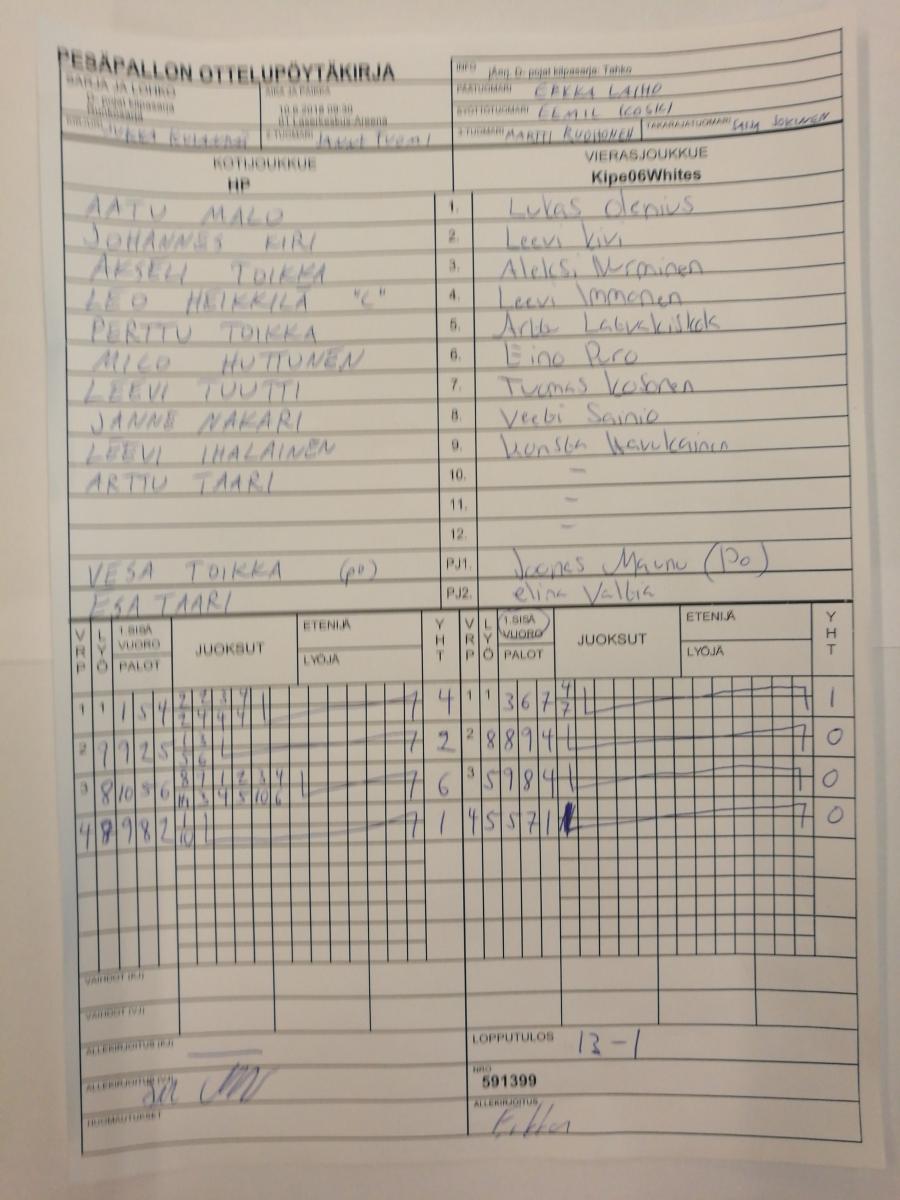 PESÄPALLON OTTELUPÖYTÄKIRJA
SARJA JA LOHKO
D-pojat kilpasarja
AIKA JA PAIKKA
10.6.2018 09:30
INFO
jÄrj. D-pojat kilpasarja: Tahko
PÄÄTUOMARI ERKKA LAIHO
SYÖTTÖTUOMARI EEMIL KOSKI
2-TUOMARI JANNE TUOMI
3-TUOMARI MARTTI RUOHONEN
TAKARAJATUOMARI SAIJA JOKINEN
KOTIJOUKKUE
HP
VIERASJOUKKUE
Kipe06Whites
AATU MALO 1. Lukas Olenius
JOHANNES KIRI 2. Leevi Kivi
AKSELI TOIKKA 3. Aleksi Nurminen
LEO HEIKKILÄ "C" 4. Leevi Immonen
PERTTU TOIKKA 5. Arttu Latvakiskola
MILO HUTTUNEN 6. Eino Puro
LEEVI TUUTTI 7. Tuomas Kosonen
JANNE NAKARI 8. Veeti Sainio
LEEVI IHALAINEN 9. Konsta Havukainen
ARTTU TAARI 10. -
11. -
12. -
VESA TOIKKA (po) PJ1. Joonas Maunu (Po)
ESA TAARI PJ2. elina Valtia
VRP LYÖ 1.SISÄ VUORO PALOT JUOKSUT ETENIJÄ LYÖJÄ YHT VRP LYÖ 1.SISÄ VUORO PALOT JUOKSUT ETENIJÄ LYÖJÄ YHT
1 1 1 5 4 2 2 3 4 7 4 1 1 3 6 7 4 7 1
2 4 4 4 7
2 9 9 2 5 1 3 7 2 2 8 8 9 4 7 0
5 6
3 8 10 5 6 8 7 1 2 3 4 7 6 3 5 9 8 4 7 0
10 3 4 5 10 6
4 8 9 8 2 1 7 1 4 5 5 7 1 7 0
10
VAIHDOT (KJ)
VAIHDOT (VJ)
ALLEKIRJOITUS (KJ)
LOPPUTULOS 13-1
ALLEKIRJOITUS (VJ)
NRO
591399
HUOMAUTUKSET
ALLEKIRJOITUS